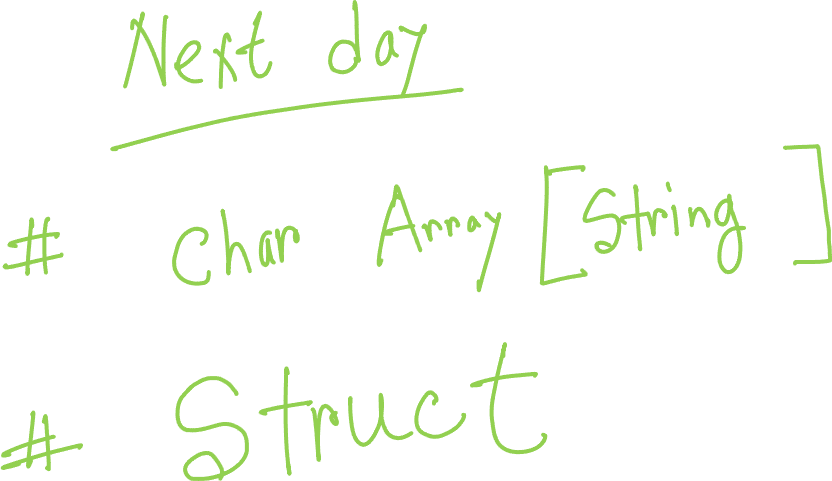 Next day
# Char Array [String]
# Struct